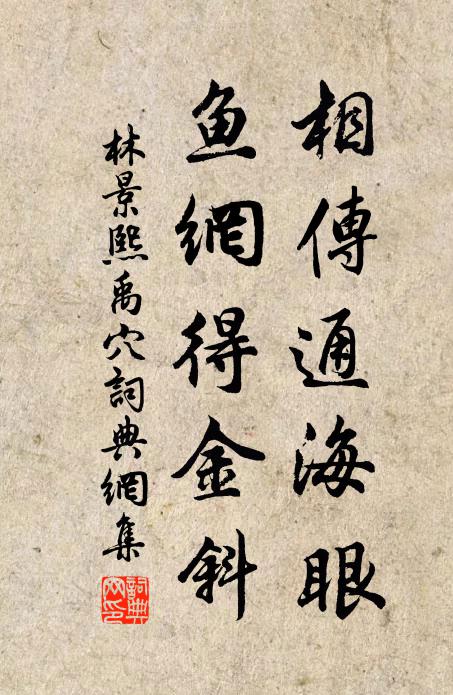 相傳通海眼
鱼網得金斜
林景熙禹穴詞典網集
詞典网印